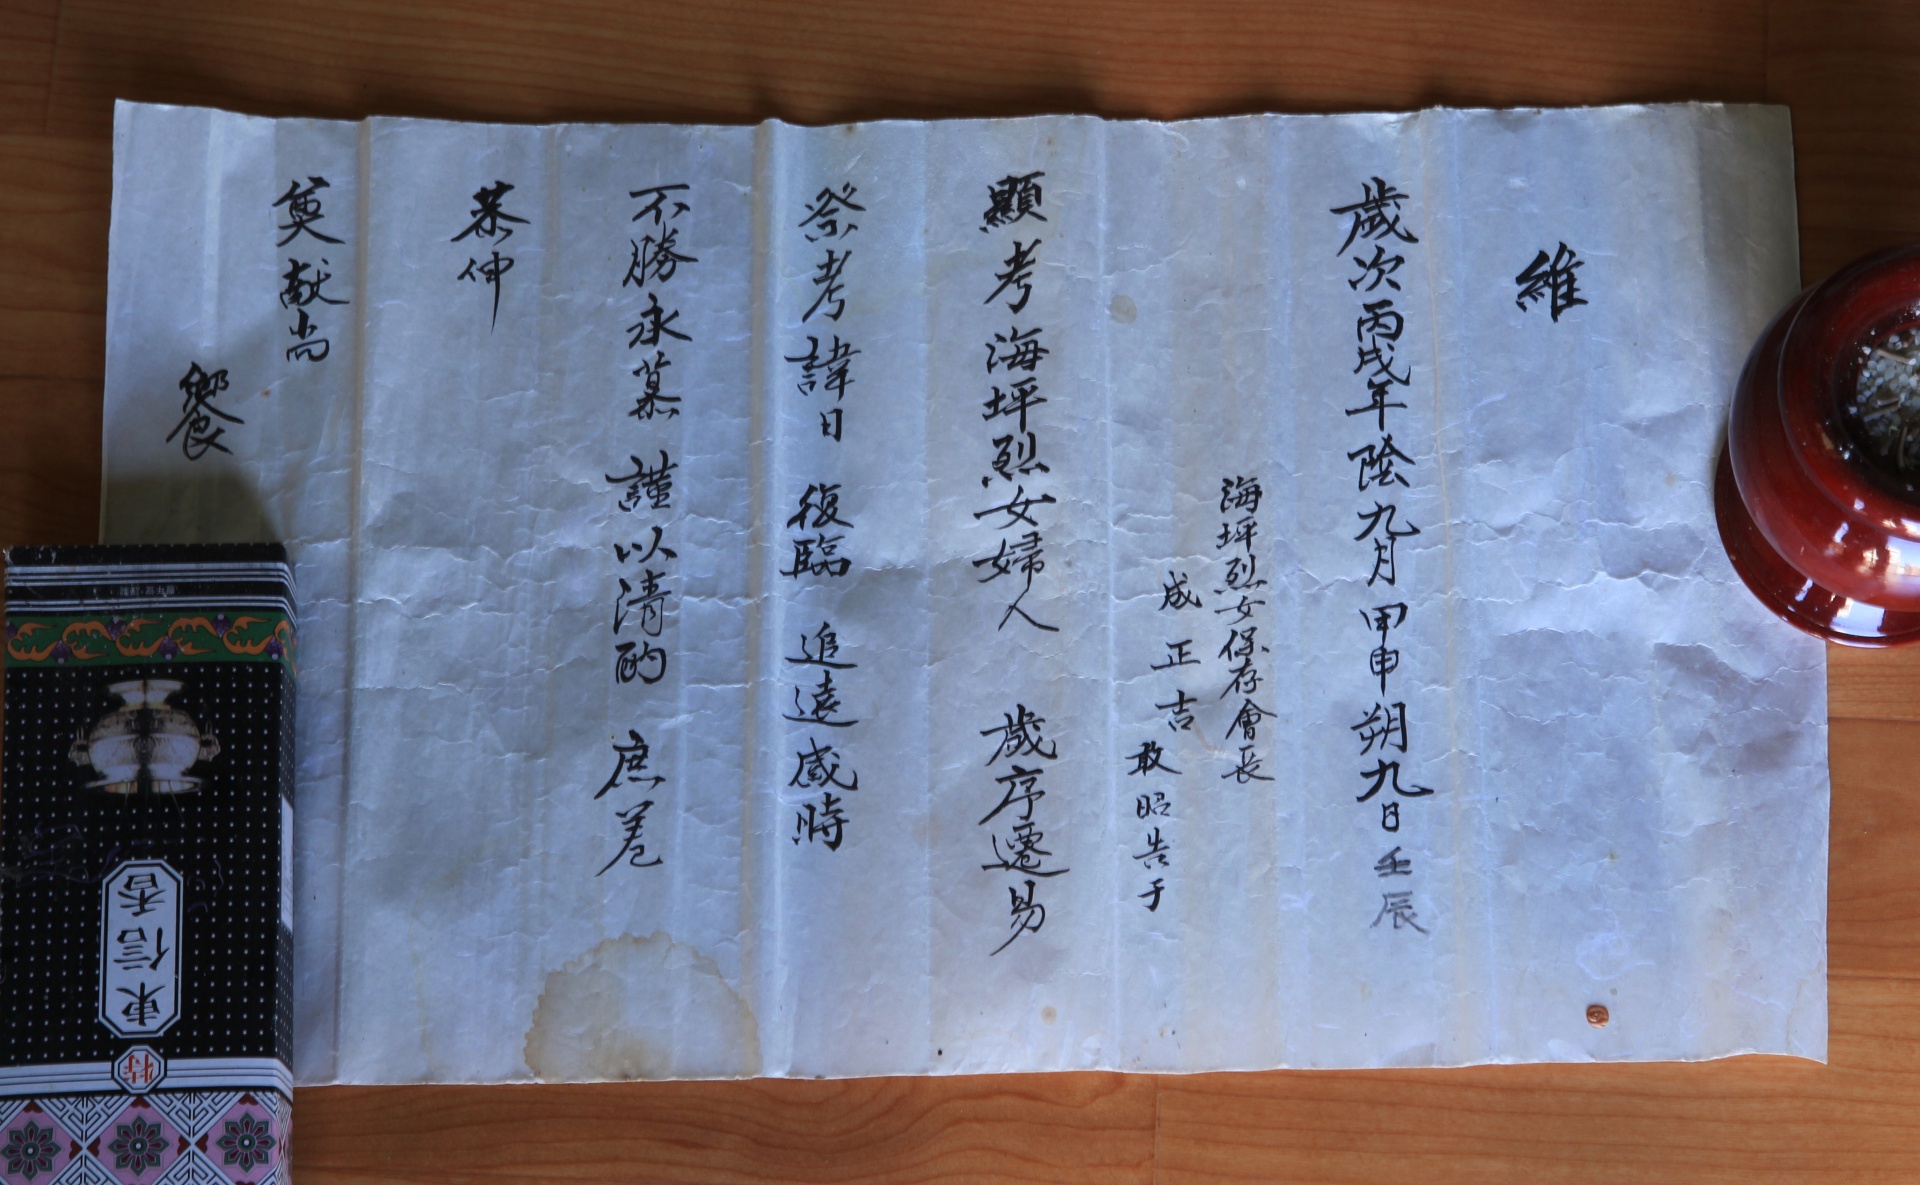 維
歲次丙戌年陰九月甲申朔九日壬辰
海坪烈女保存會長
成正吉敢昭告于
顯考海坪烈女婦人 歲序遷易
祭考諱日 復臨 追遠感時
不勝永慕 謹以淸酌 庶羞
恭伸
奠獻尚
饗
東信香
特